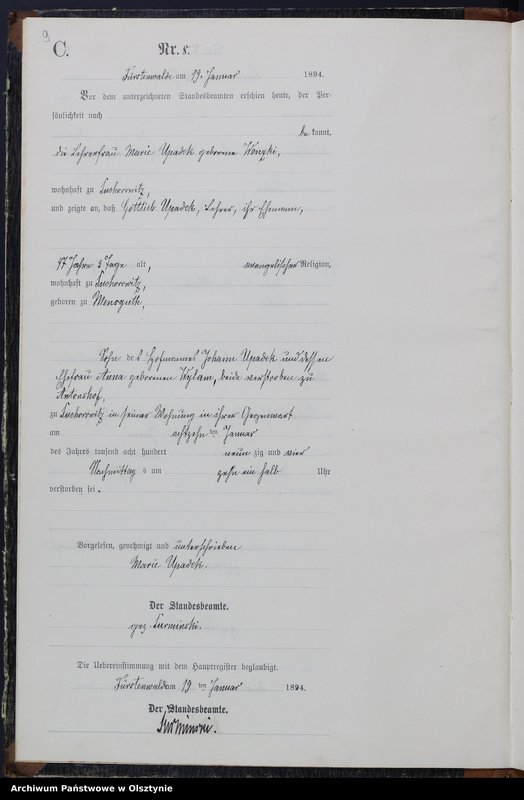 9
C.
Nr. 8.
Fürstenwalde am 19. Januar 1894.
Vor dem unterzeichneten Standesbeamten erschien heute, der Per-
sönlichkeit nach
be kannt,
die Lehrerfrau Marie Upadek geborene
wohnhaft zu Suchorowitz,
und zeigte an, daß Gottlieb Upadek, Lehrer, ihr Ehemann,
47 Jahre 3 Tage alt, evangelischer Religion,
wohnhaft zu Suchorowitz,
geboren zu Mensguth,
Sohn des Hofmannes Johann Upadek und dessen
Ehefrau Anna geborenen Kylam, beide verstorben zu
Antonshof,
zu Suchorowitz in seiner Wohnung in ihrer Gegenwart
am achtzehn ten Januar
des Jahres tausend acht hundert neun zig und vier
Nachmittag s um zehn ein halb Uhr
verstorben sei.
Vorgelesen, genehmigt und unterschrieben
Marie Upadek.
Der Standesbeamte.
gez. Surminski.
Die Uebereinstimmung mit dem Hauptregister beglaubigt.
Fürstenwalde am 19 ten Januar 1894.
Der Standesbeamte.
Surminski.
Archiwum Państwowe w Olsztynie